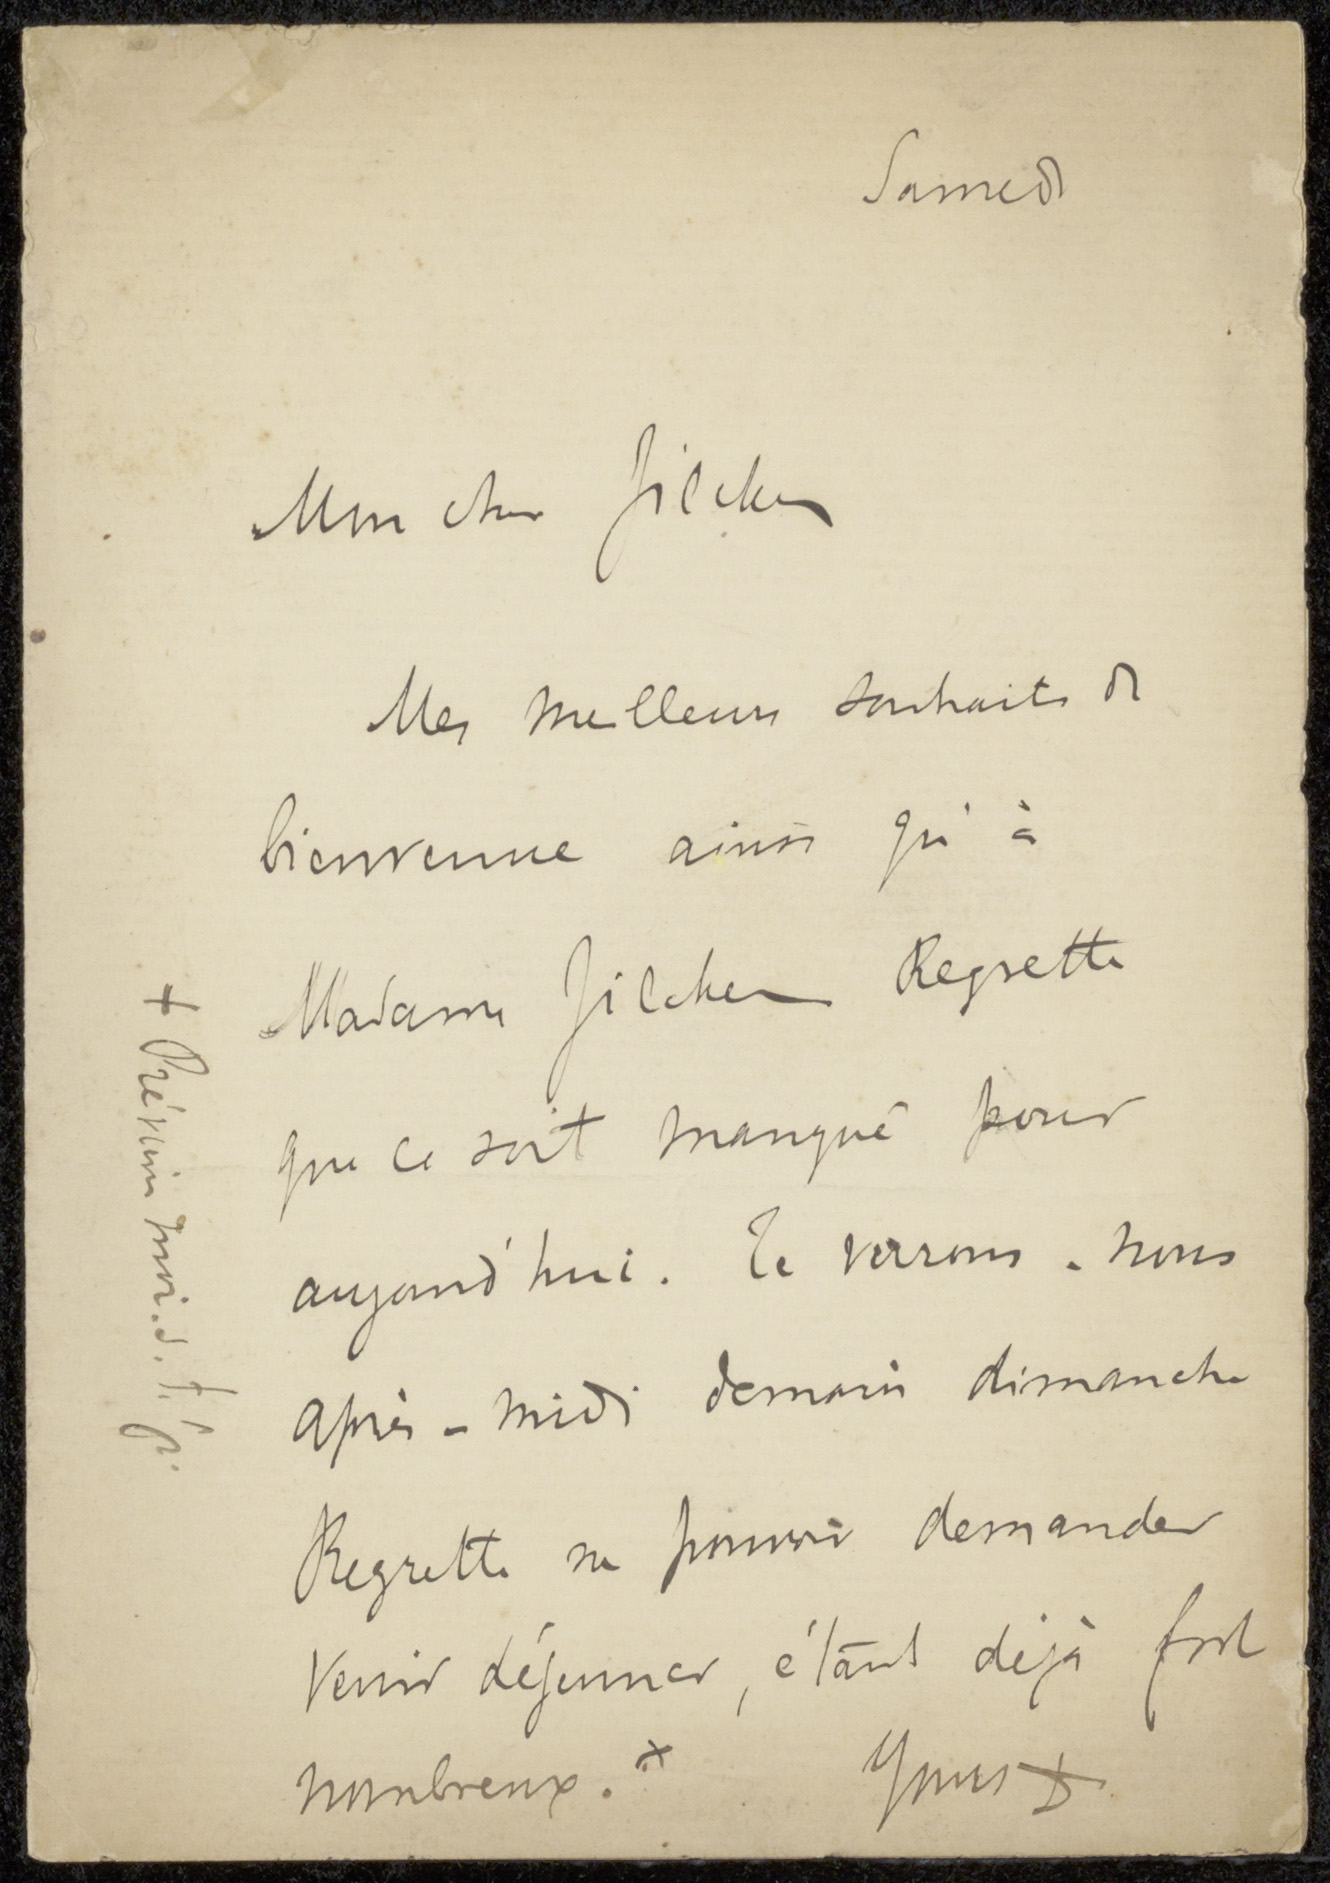 Samedi
Mon cher Zilcken
Mes meilleurs souhaits de
bienvenue ainsi qu'à
Madame Zilcken Regrette
que ce soit manqué pour
aujourd'hui. Te verrons-nous
après-midi demain dimanche
Regrette ne pouvoir demander
venir déjeuner, étant déjà fort
nombreux. +
Yours
+ Préviens moi. s.